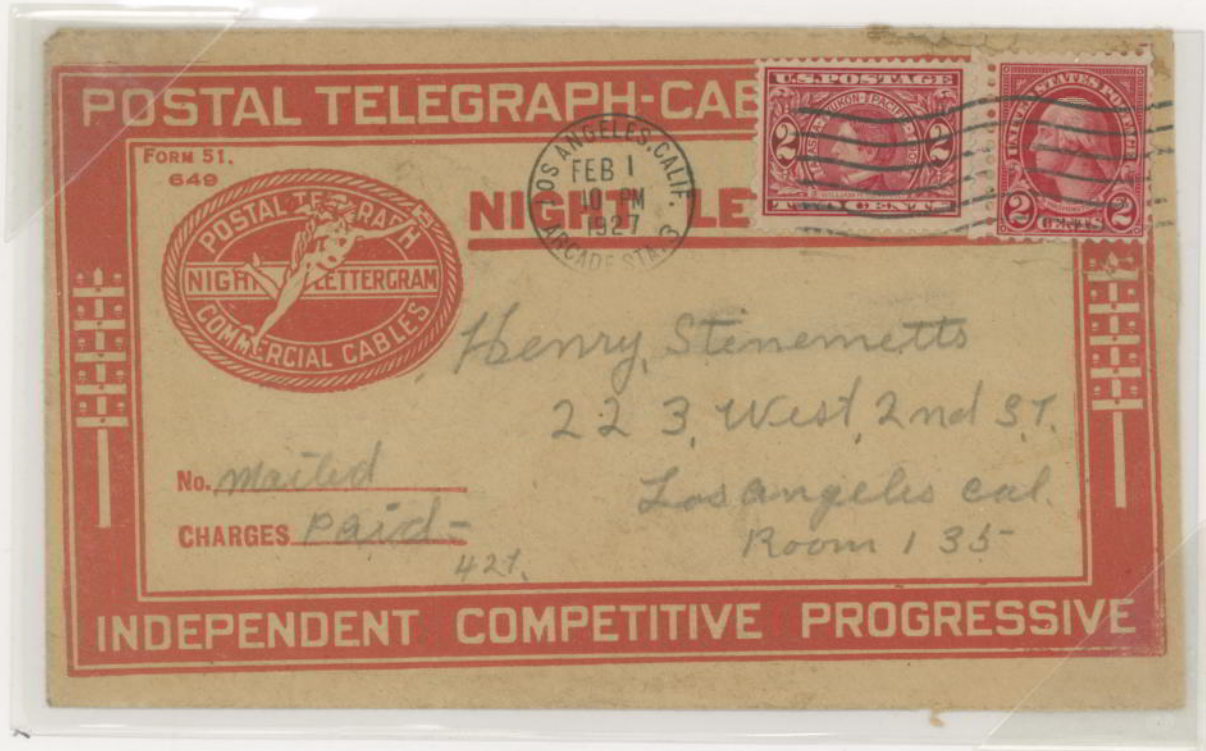 POSTAL TELEGRAPH-CAB
FORM 51.
649
POSTAL TELEGRAPH
NIGHT LETTERGRAM
COMMERCIAL CABLES
NIGHT LE
LOS ANGELES, CALIF.
FEB 1
10 PM
1927
ARCADE STA. 3
U.S. POSTAGE
ALASKA-YUKON-PACIFIC
2 2
TWO CENTS
UNITED STATES POSTAGE
2 CENTS 2
Henry, Stinemetts
223, West, 2nd ST.
Los angeles cal.
Room 135
No. mailed
CHARGES paid-
421.
INDEPENDENT COMPETITIVE PROGRESSIVE